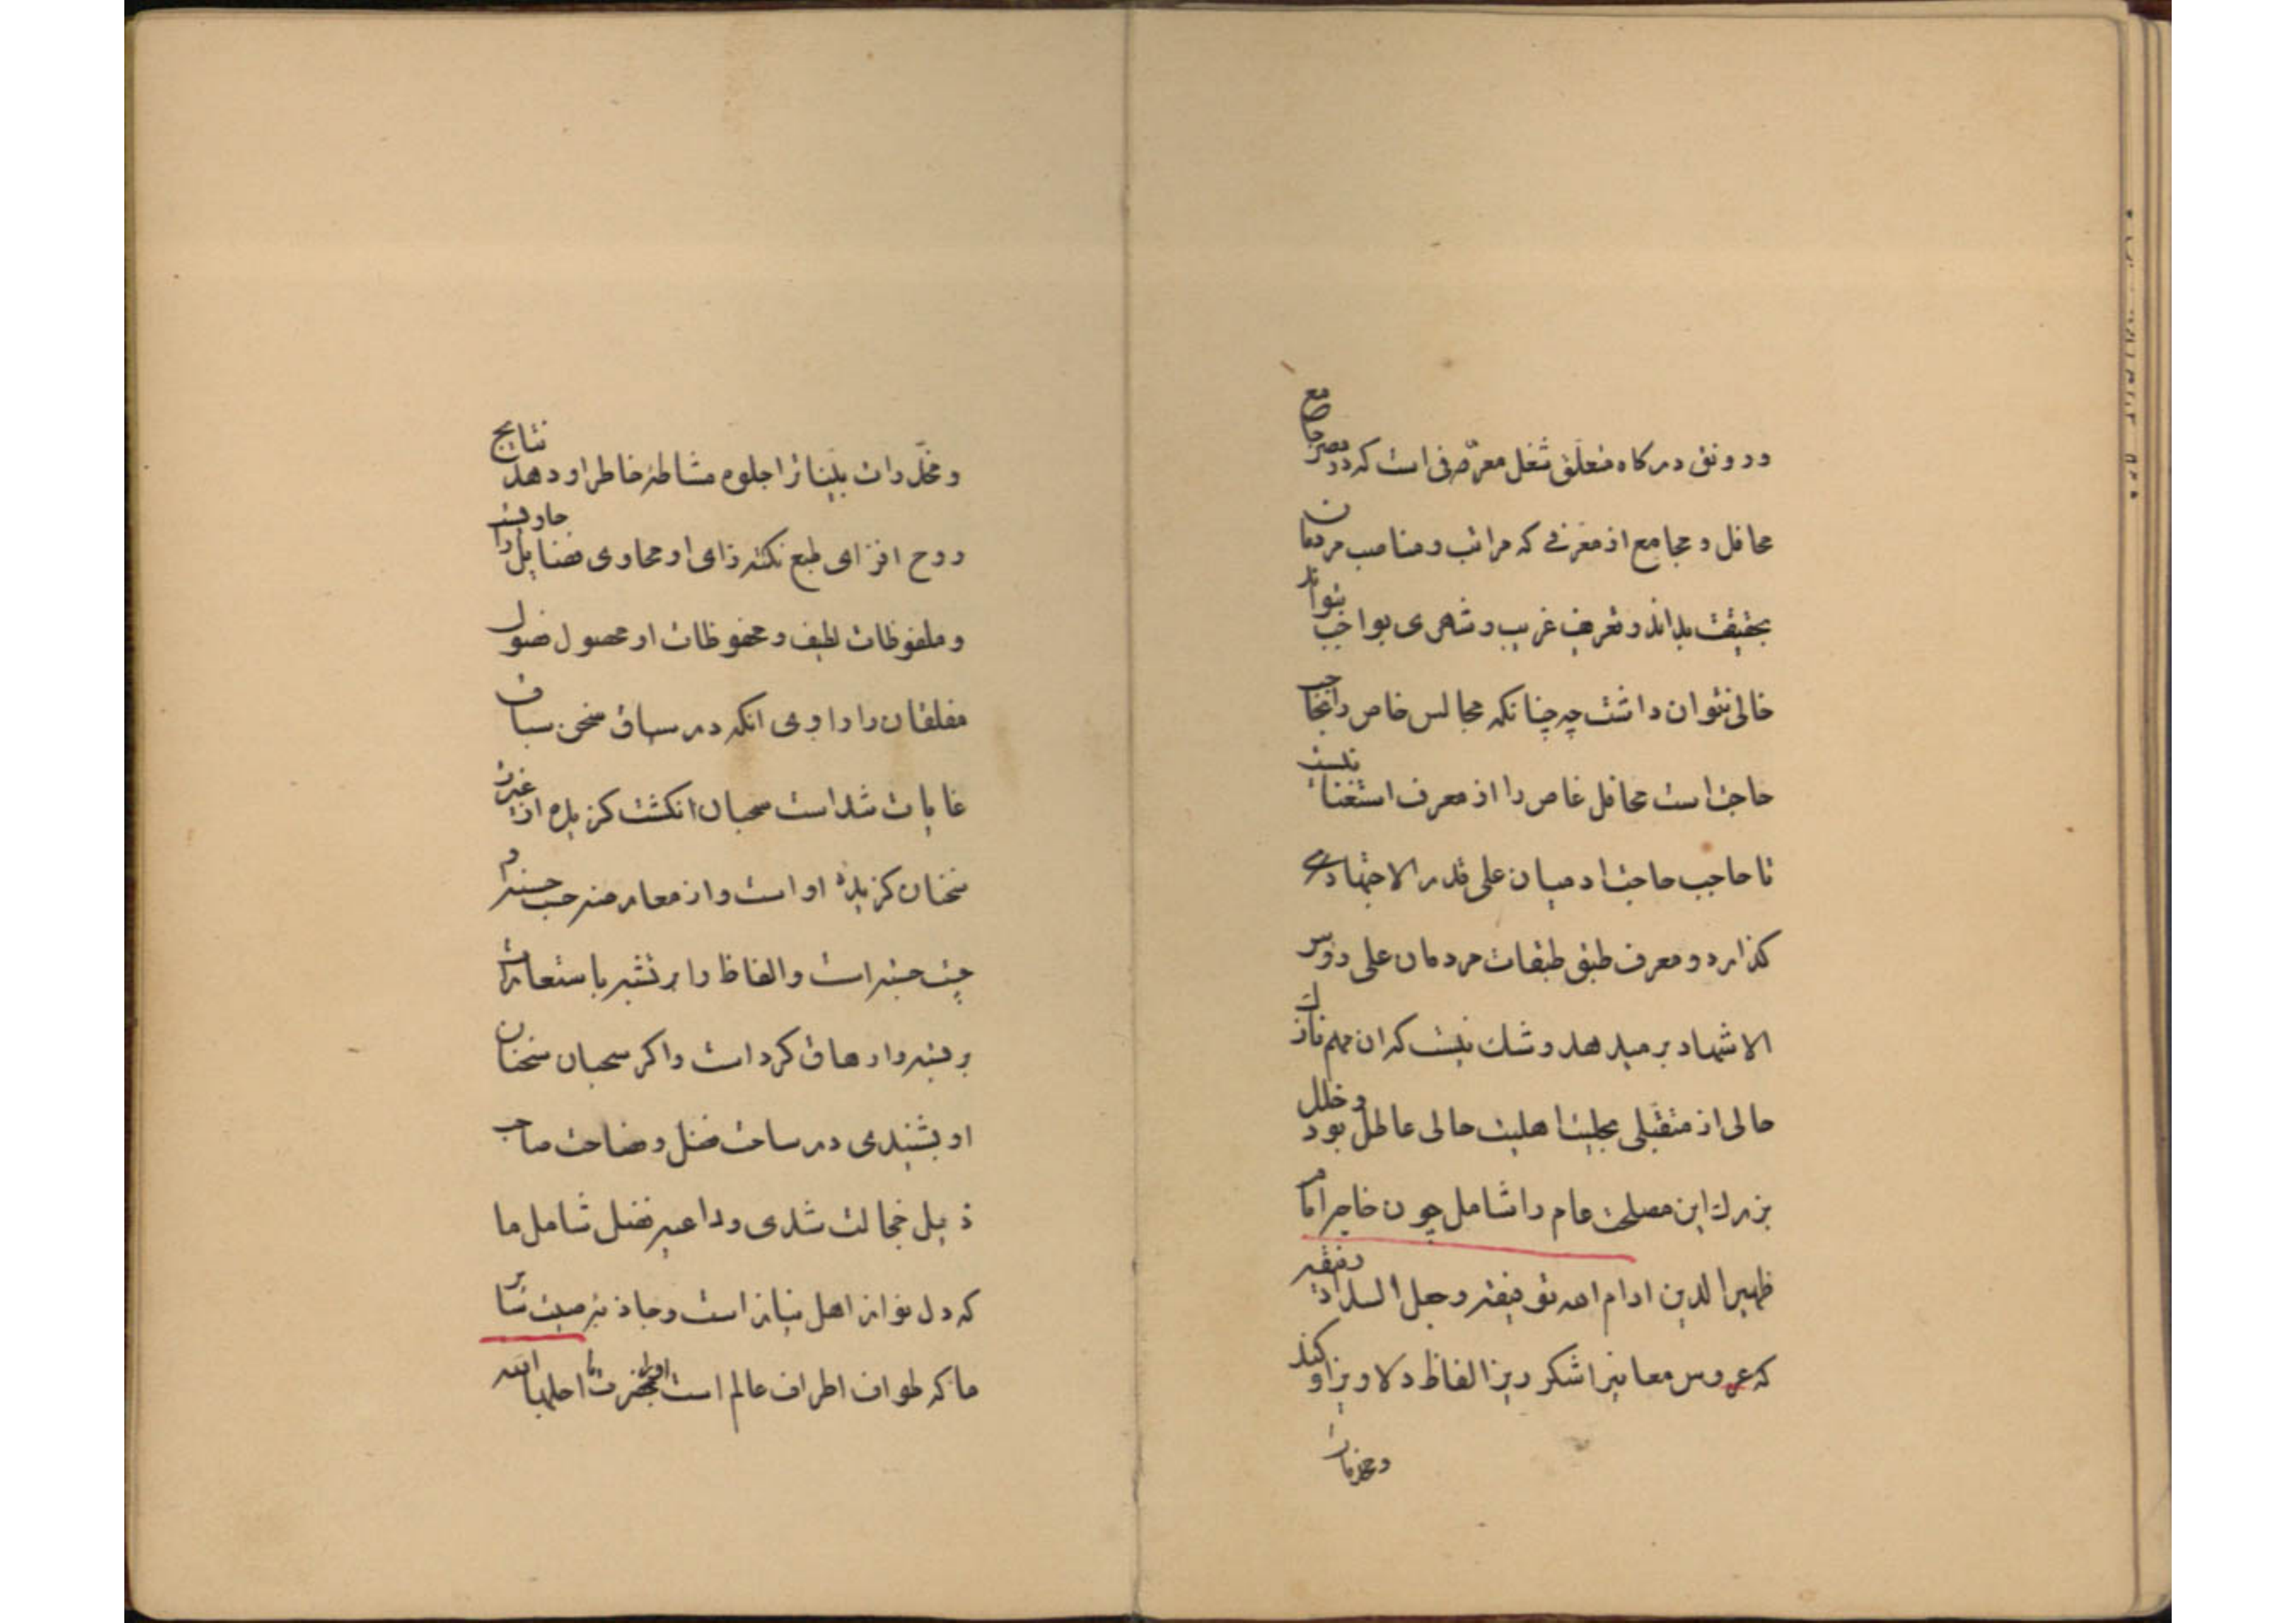 ورونق درکاه متعلق شغل معرّفی است که در مصر جامع
محافل و مجامع از معرفی که مراتب و مناصب مردمان
بحقیقت بداند و تعریف غریب و شهری بواجب بتواند
خالی نتوان داشت چه چنانکه مجالس خاص را بحاجب
حاجت است محافل غاص را از معرف استغنا نیست
تا حاجب حاجت ادمیان علی قدر الاجتهاد می
کذارد و معرف طبق طبقات مردمان علی روس
الاشهاد بر میدهد و شك نیست که ان مهم نازك
حالی از متقبلی بحلیت اهلیت حالی عاطل بود و خلل
بزرك این مصلحت عام را شامل چون خاجه امام
ظهیر الدین ادام الله توفیقه و جعل السداد رفیقه
که عروس معانیرا شکر ریز الفاظ دلاویز او کند
و مخدرات
و مخدّرات بیانرا جلوه مشاطهٔ خاطر او دهد نتایج
روح افزای طبع نکته زای او محاوی فضایل را حاویست
و ملفوظات لطیف و محفوظات او محصول فصول
مفلقان را راوی انکه در سیاق سخن سباق
غایات شد است سحبان انکشت کزیده از غیرت
سخنان کزیدهٔ او است و از معارضه حب حسنه دم
چست جسته است و الفاظ را بر نثبر باستعارت
بر دارهاق کرد است و اکر سحبان سخنان
او بشنیدی در ساحت فضل و فصاحت صاحب
ذیل خجالت شدی و داعیه فضل شامل ما
که دل نواز اهل نیاز است و جاذبه صیت سایر
ما که طواف اطراف عالم است او را بحضرت ما احلها الله